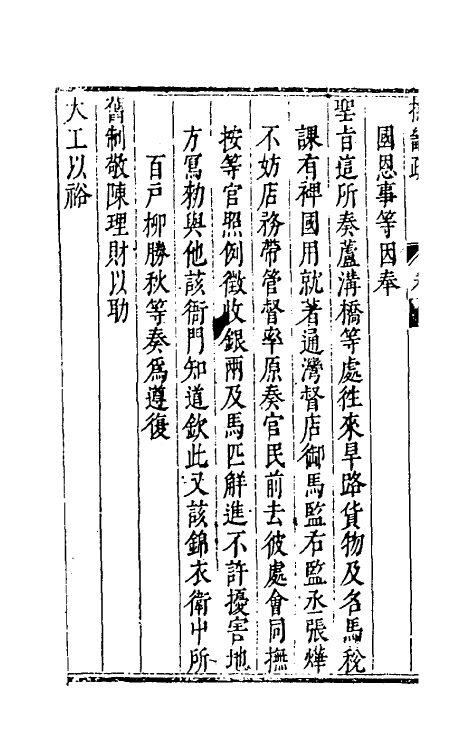 國恩事等因奉
聖旨這所奏蘆溝橋等處徃來旱路貨物及名馬稅
課有裨國用就著通灣督店御馬監右監丞張燁
不妨店務帶管督率原奏官民前去彼處會同撫
按等官照例徵收銀兩及馬匹解進不許擾害地
方寫勑與他該衙門知道欽此又該錦衣衛中所
百戶柳勝秋等奏爲遵復
舊制敬陳理財以助
大工以裕